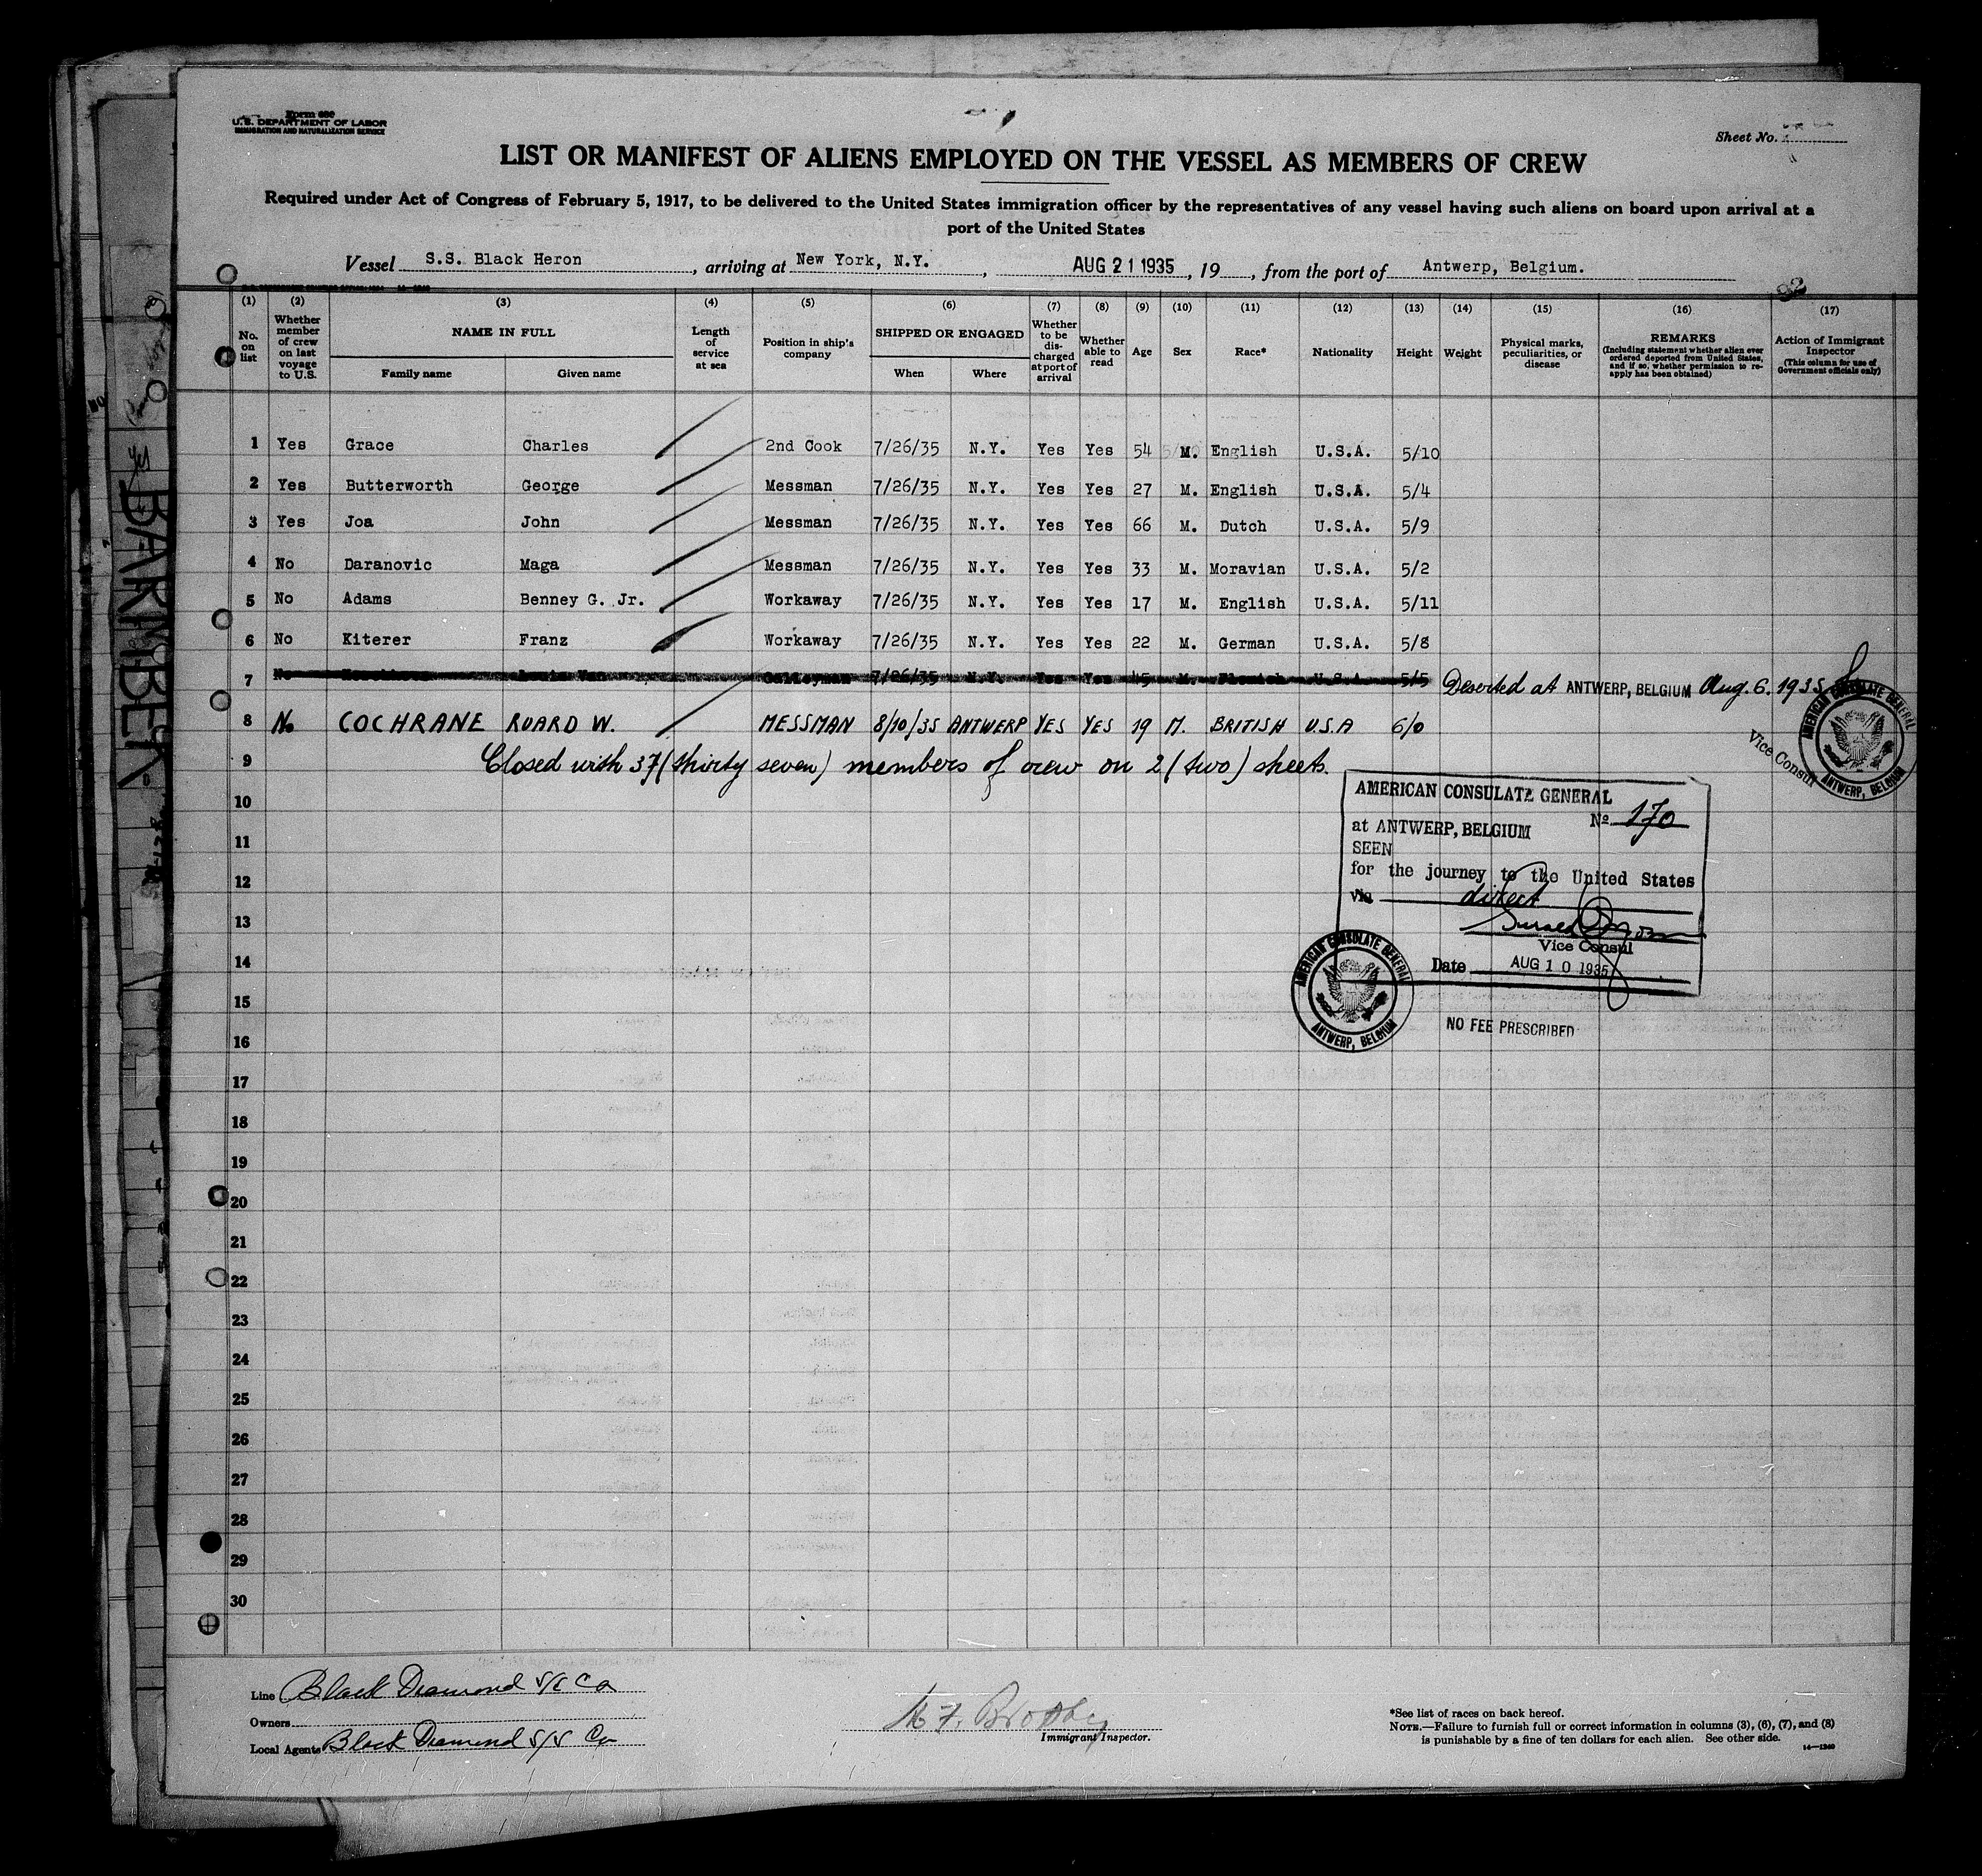 Form 680
U.S. DEPARTMENT OF LABOR
IMMIGRATION AND NATURALIZATION SERVICE
Sheet No.
LIST OR MANIFEST OF ALIENS EMPLOYED ON THE VESSEL AS MEMBERS OF CREW
Required under Act of Congress of February 5, 1917, to be delivered to the United States immigration officer by the representatives of any vessel having such aliens on board upon arrival at a
port of the United States
Vessel S.S. Black Heron, arriving at New York, N.Y., AUG 21 1935, 19, from the port of Antwerp, Belgium.
82
(1) (2) (3) (4) (5) (6) (7) (8) (9) (10) (11) (12) (13) (14) (15) (16) (17)
No. on list
Whether member of crew on last voyage to U.S.
NAME IN FULL
Family name Given name
Length of service at sea
Position in ship's company
SHIPPED OR ENGAGED
When Where
Whether to be discharged at port of arrival
Whether able to read
Age
Sex
Race*
Nationality
Height
Weight
Physical marks, peculiarities, or disease
REMARKS
(Including statement whether alien ever ordered deported from United States, and if so, whether permission to reapply has been obtained)
Action of Immigrant Inspector
(This column for use of Government officials only)
1 Yes Grace Charles 2nd Cook 7/26/35 N.Y. Yes Yes 54 M. English U.S.A. 5/10
2 Yes Butterworth George Messman 7/26/35 N.Y. Yes Yes 27 M. English U.S.A. 5/4
3 Yes Joa John Messman 7/26/35 N.Y. Yes Yes 66 M. Dutch U.S.A. 5/9
4 No Daranovic Maga Messman 7/26/35 N.Y. Yes Yes 33 M. Moravian U.S.A. 5/2
5 No Adams Benney G. Jr. Workaway 7/26/35 N.Y. Yes Yes 17 M. English U.S.A. 5/11
6 No Kiterer Franz Workaway 7/26/35 N.Y. Yes Yes 22 M. German U.S.A. 5/8
7 No Louis Van Galleyman 7/26/35 N.Y. Yes Yes 45 M. Flemish U.S.A. 5/5 Deserted at ANTWERP, BELGIUM Aug. 6. 1935
8 No COCHRANE RUARD W. MESSMAN 8/10/35 ANTWERP YES YES 19 M. BRITISH U.S.A 6/0
9 Closed with 37 (thirty seven) members of crew on 2 (two) sheets.
AMERICAN CONSULATE GENERAL
ANTWERP, BELGIUM
Vice Consul
10
11
12
13
14
15
16
17
18
19
20
21
22
23
24
25
26
27
28
29
30
AMERICAN CONSULATE GENERAL
No 170
at ANTWERP, BELGIUM
SEEN
for the journey to the United States
via direct
Vice Consul
Date AUG 10 1935
AMERICAN CONSULATE GENERAL
ANTWERP, BELGIUM
NO FEE PRESCRIBED
BARNBER
Line Black Diamond S/S Co
Owners
Local Agents Black Diamond S/S Co
Immigrant Inspector.
*See list of races on back hereof.
NOTE.—Failure to furnish full or correct information in columns (3), (6), (7), and (8)
is punishable by a fine of ten dollars for each alien. See other side.
14—1240